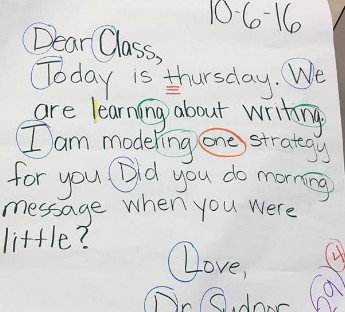 10-6-16
Dear Class,
Today is thursday. We
are learning about writing.
I am modeling one strategy
for you. Did you do morning
message when you were
little?
Love,
Dr. Sudnor
4